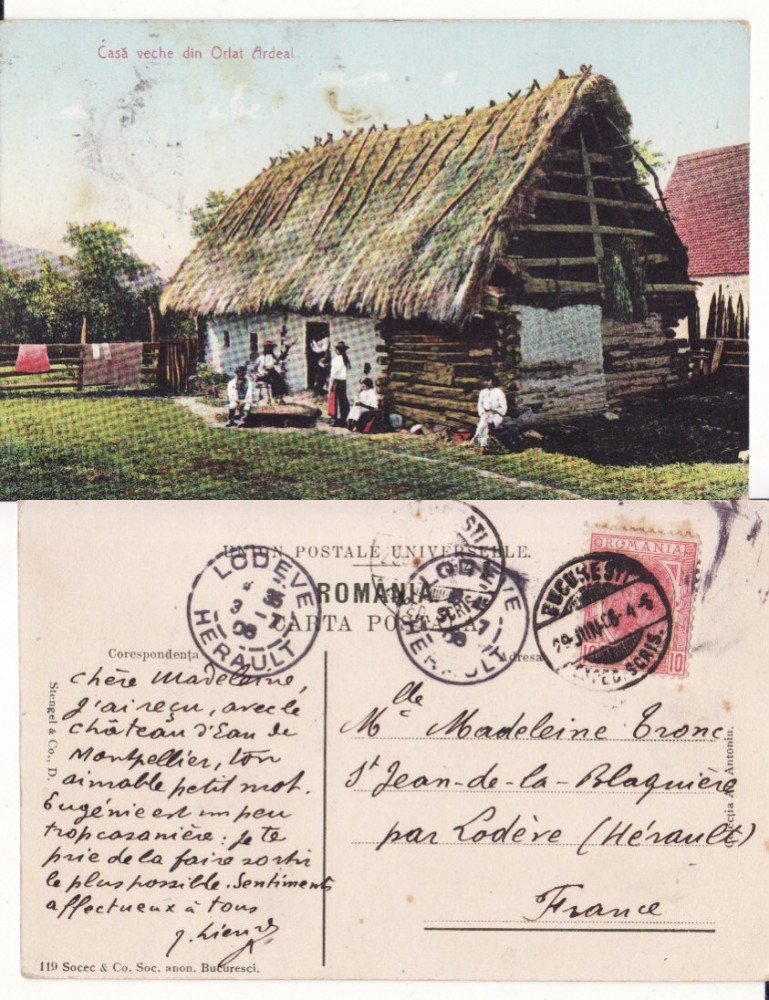 Casă veche din Orlat Ardeal
UNION POSTALE UNIVERSELLE.
ROMÂNIA
CARTA POSTALA
Corespondența
Adresa
ROMANIA
10
BUCUREȘTI
29 JUN
EXPED. SCRIS.
LODÈVE
HÉRAULT
LODÈVE
HÉRAULT
chère Madeleine,
J'ai reçu, avec le
château d'Eau de
Montpellier, ton
aimable petit mot.
Eugénie est un peu
trop casanière: je te
prie de la faire sortir
le plus possible. Sentiments
affectueux à tous
Mlle Madeleine Tronc
St Jean-de-la-Blaquière
par Lodève (Hérault)
France
Stengel & Co., D.
Colecția A. Antoniu.
119 Socec & Co. Soc. anon. Bucuresci.